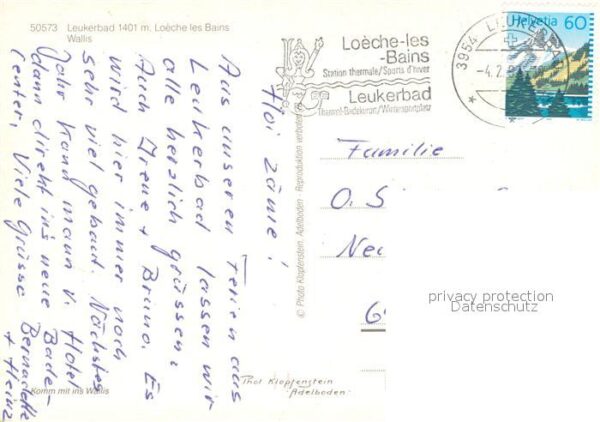 50573 Leukerbad 1401 m. Loèche les Bains
Wallis
Hoi zäme!
Aus unseren Ferien aus
Leukerbad lassen wir
alle herzlich grüssen:
Auch Irene + Bruno. Es
wird hier immer noch
sehr viel gebaut. Nächstes
Jahr kann mann v. Hotel
dann direkt ins neue Bade-
center. Viele Grüsse Bernadette
+ Heinz
Komm mit ins Wallis
© Photo Klopfenstein, Adelboden - Reproduktion verboten
Thol Klopfenstein
Adelboden
Loèche-les
-Bains
Station thermale/Sports d'hiver
Leukerbad
Thermal-Badekurort/Wintersportplatz
3954 LEUKE
-4.2.
Helvetia 60
Familie
O. S
Ne
privacy protection
Datenschutz